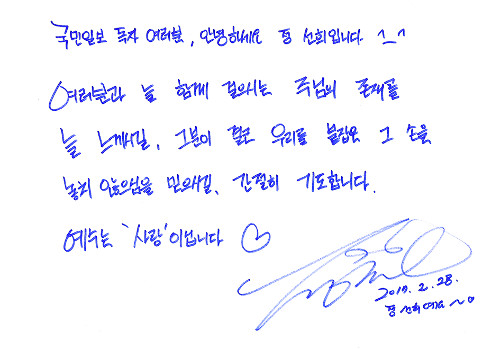 국민일보 독자 여러분, 안녕하세요 정 선희입니다 ^_^
여러분과 늘 함께 걸으시는 주님의 존재를
늘 느끼시길, 그분이 결코 우리를 붙잡은 그 손을
놓지 않으심을 믿으시길, 간절히 기도합니다.
예수는 '사랑'이십니다 ♡
2019. 2. 28.
정 선희예요 ~♡